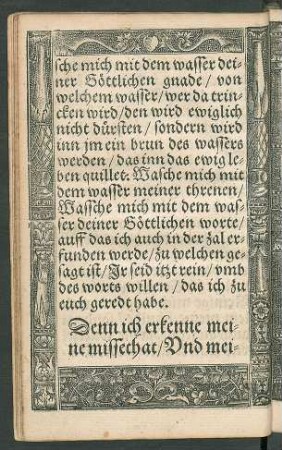 sche mich mit dem wasser dei-
ner Göttlichen gnade / von
welchem wasser / wer da trin-
cken wird / den wird ewiglich
nicht dürsten / sondern wird
inn jm ein brun des wassers
werden / das inn das ewig le-
ben quillet. Wasche mich mit
dem wasser meiner threnen /
Wassche mich mit dem was-
ser deiner Göttlichen worte /
auff das ich auch in der zal er-
funden werde / zu welchen ge-
sagt ist / Jr seid itzt rein / vmb
des worts willen / das ich zu
euch geredt habe.
Denn ich erkenne mei-
ne missethat / Vnd mei-